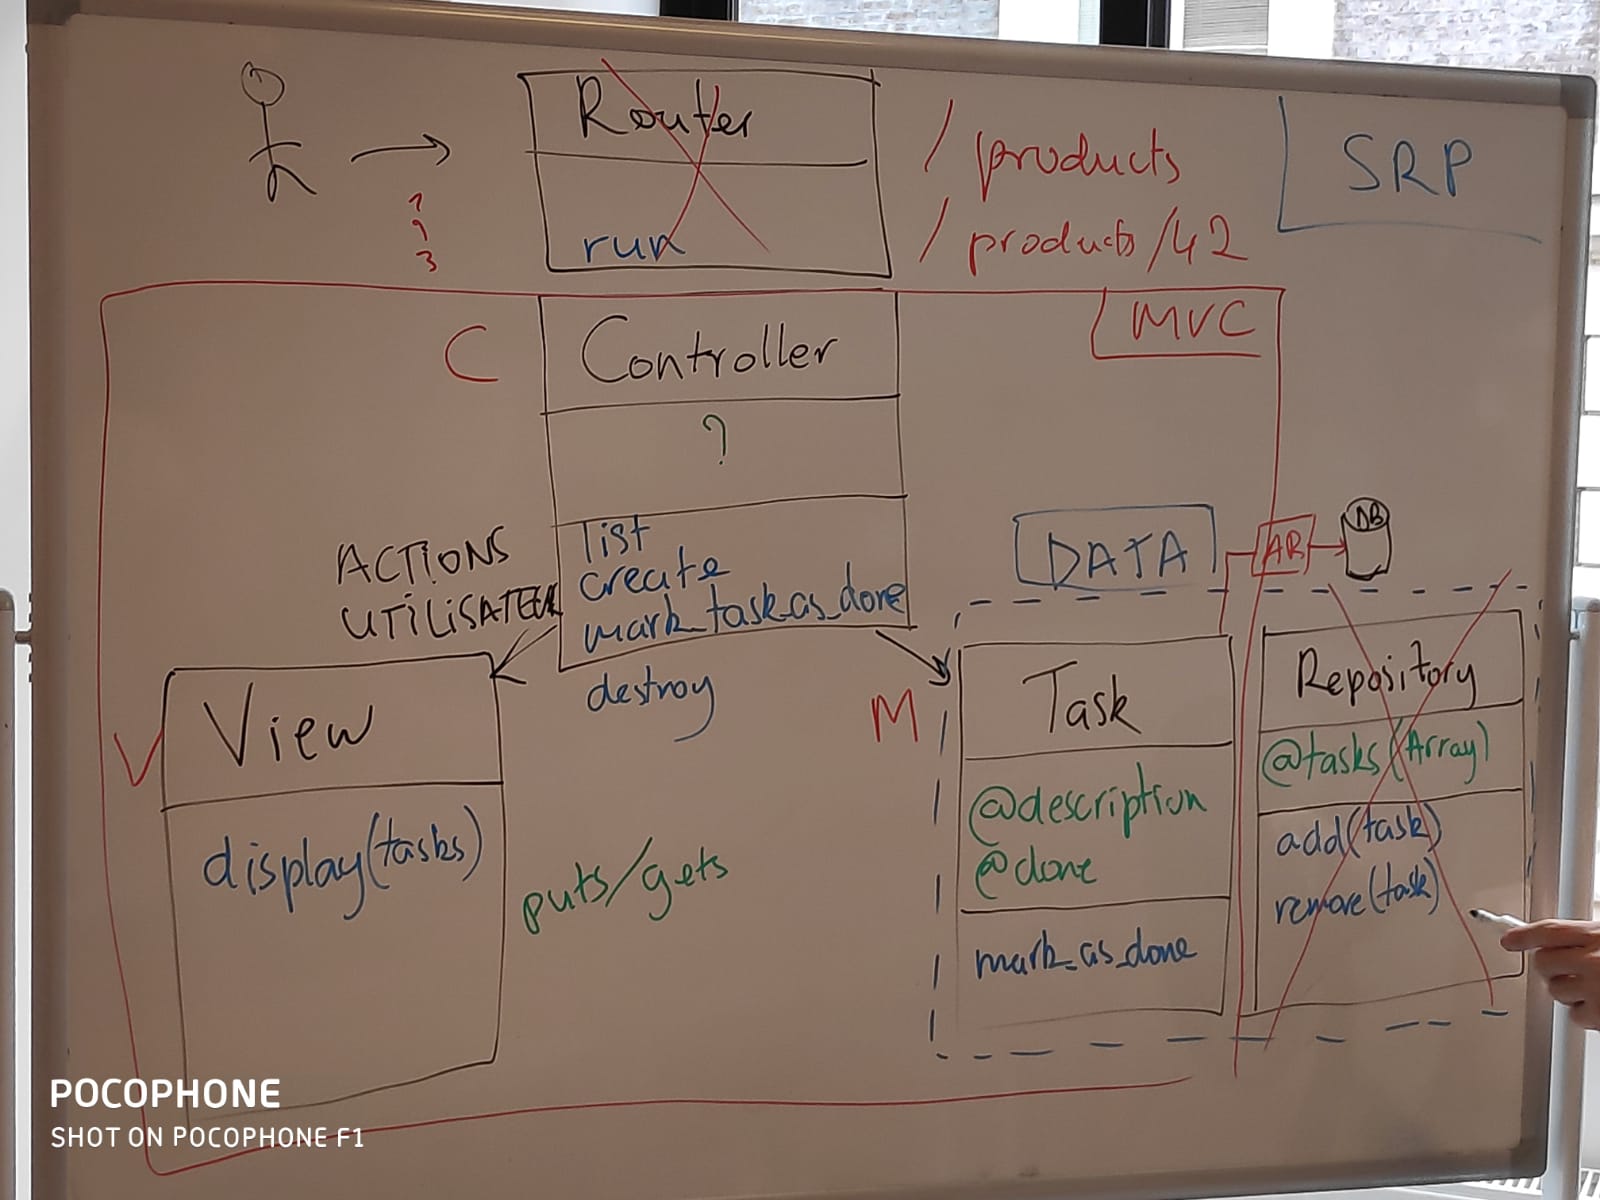 Router
run
1
9
3
/products
/products/42
SRP
MVC
C
Controller
?
list
create
mark_task_as_done
destroy
ACTIONS
UTILISATEUR
DATA
AR
DB
V
View
display(tasks)
puts/gets
M
Task
@description
@done
mark_as_done
Repository
@tasks (Array)
add(task)
remove(task)
POCOPHONE
SHOT ON POCOPHONE F1